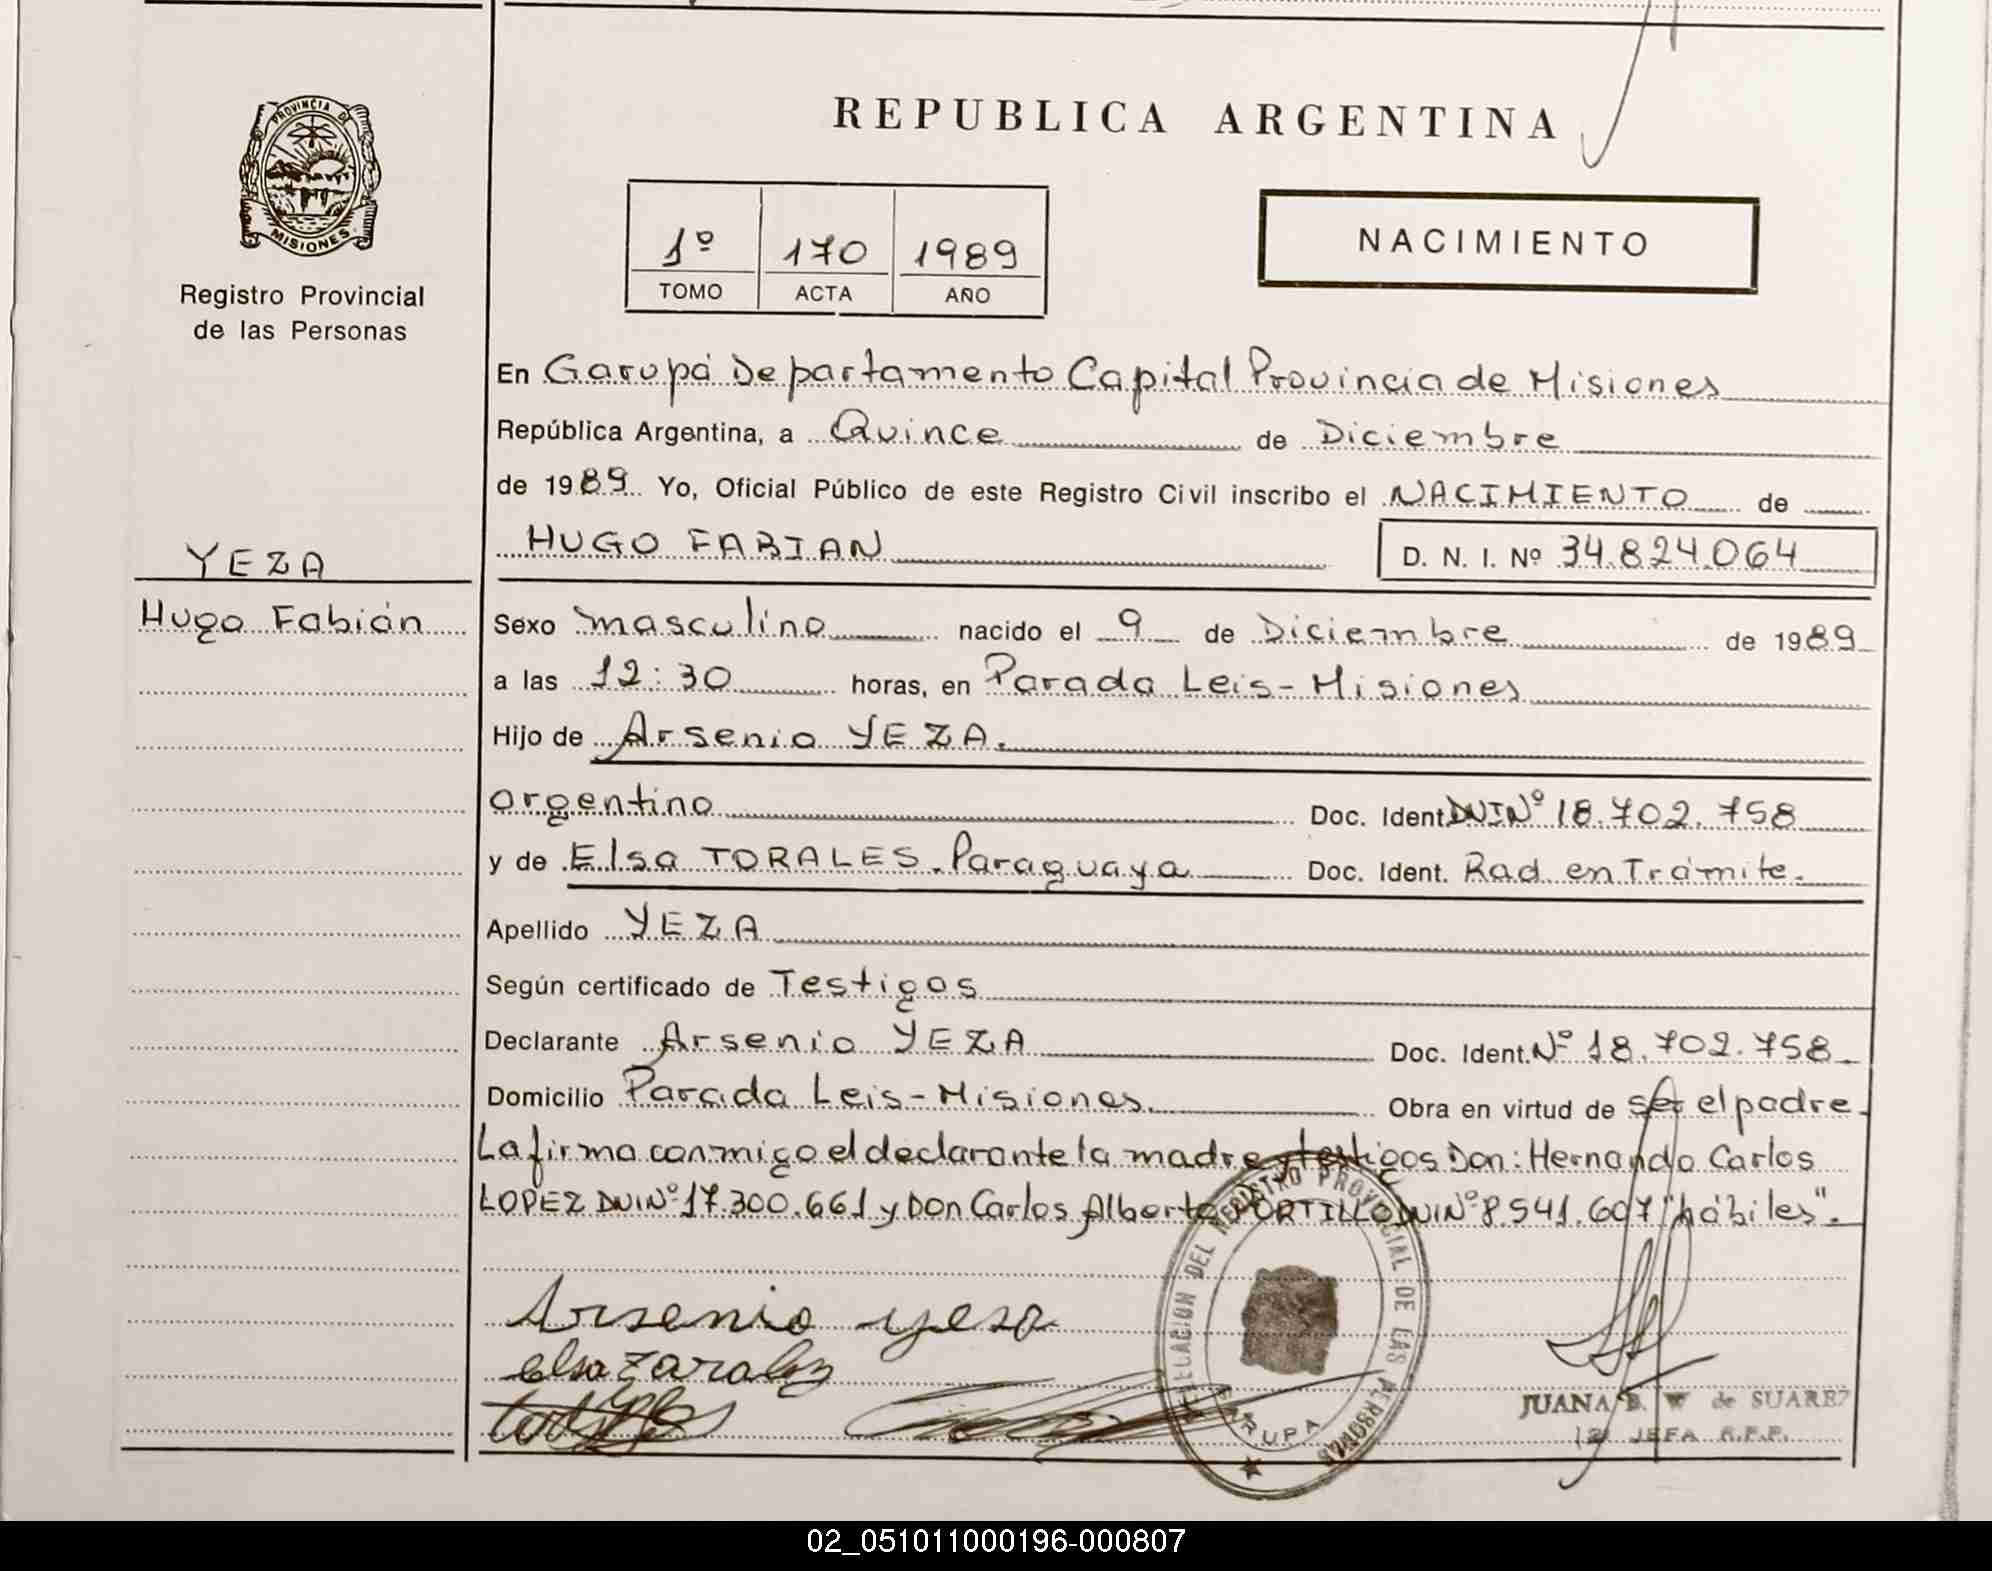 REPUBLICA ARGENTINA
PROVINCIA DE MISIONES
Registro Provincial
de las Personas
1º 170 1989
TOMO ACTA AÑO
NACIMIENTO
En Garupá Departamento Capital Provincia de Misiones
República Argentina, a Quince de Diciembre
de 1989 Yo, Oficial Público de este Registro Civil inscribo el NACIMIENTO de
HUGO FABIAN D. N. I. Nº 34.824.064
YEZA
Hugo Fabián
Sexo masculino nacido el 9 de Diciembre de 1989
a las 12:30 horas, en Parada Leis-Misiones
Hijo de Arsenio YEZA.
argentino Doc. Ident. DNI Nº 18.702.758
y de Elsa TORALES. Paraguaya Doc. Ident. Rad. en Trámite.
Apellido YEZA
Según certificado de Testigos
Declarante Arsenio YEZA Doc. Ident. Nº 18.702.758
Domicilio Parada Leis-Misiones. Obra en virtud de ser el padre.
La firma conmigo el declarante la madre y testigos Don: Hernando Carlos
LOPEZ DNI Nº 17.300.661 y Don Carlos Alberto PORTILLO DNI Nº 8.541.607 "hábiles".
Arsenio yesa
elsa
DEL REGISTRO PROVINCIAL DE LAS PERSONAS
GARUPA
JUANA B. W de SUAREZ
JEFA R.P.P.
02_051011000196-000807